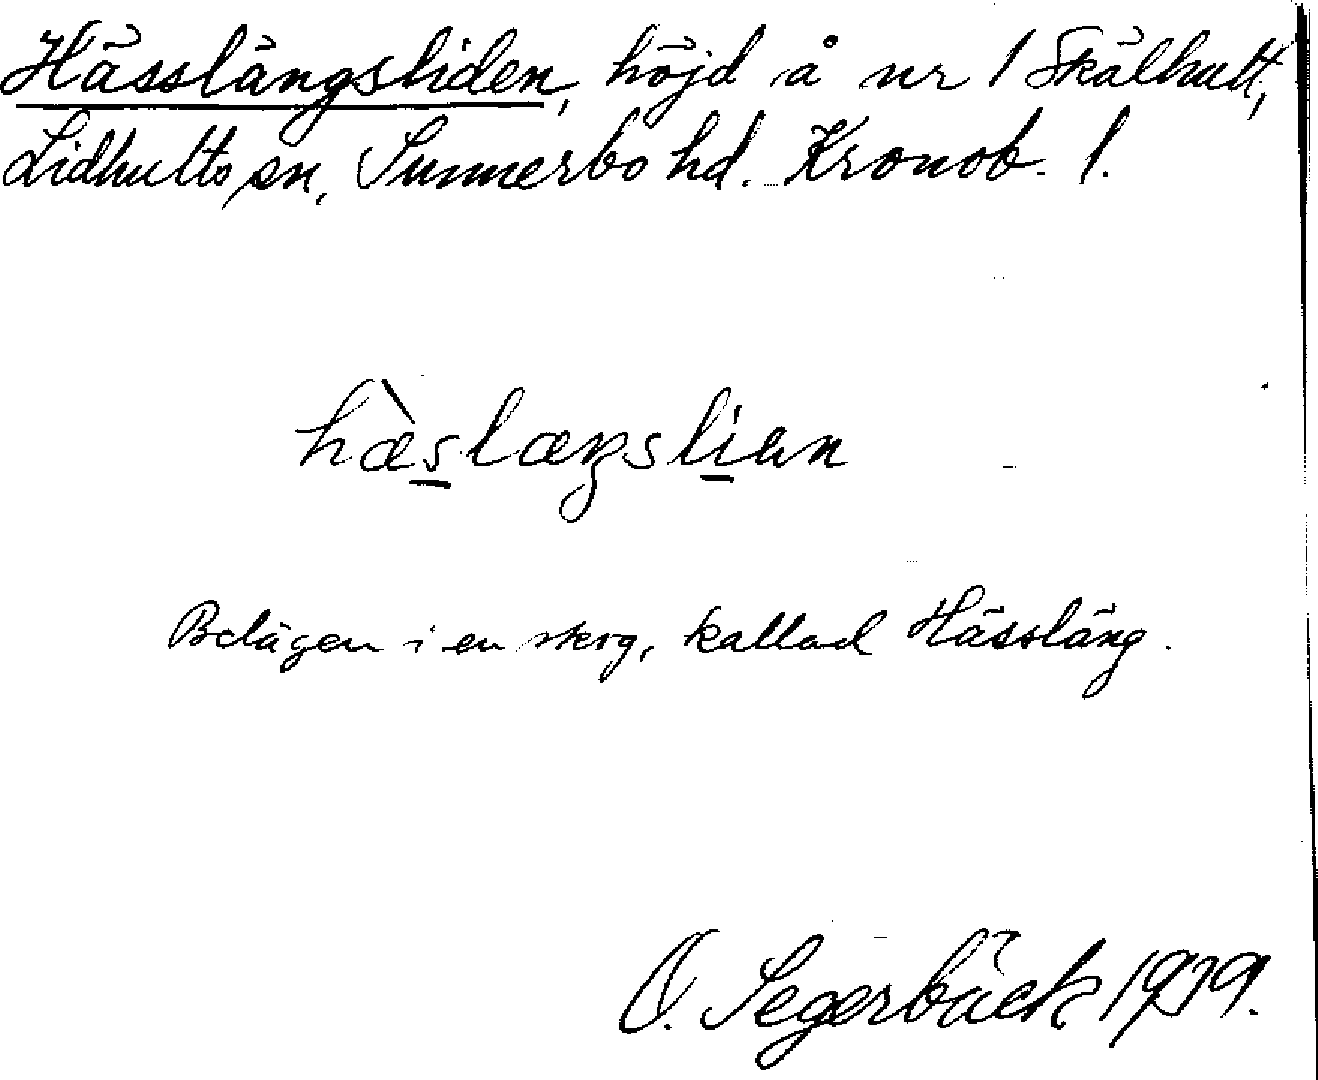 Hässlängsliden, höjd å nr 1 Skälhult,
Lidhults sn, Sunnerbo hd. Kronob. l.
hæ̀slæŋslian
Belägen i en skog, kallad Hässläng.
O. Segerbäck 1939.